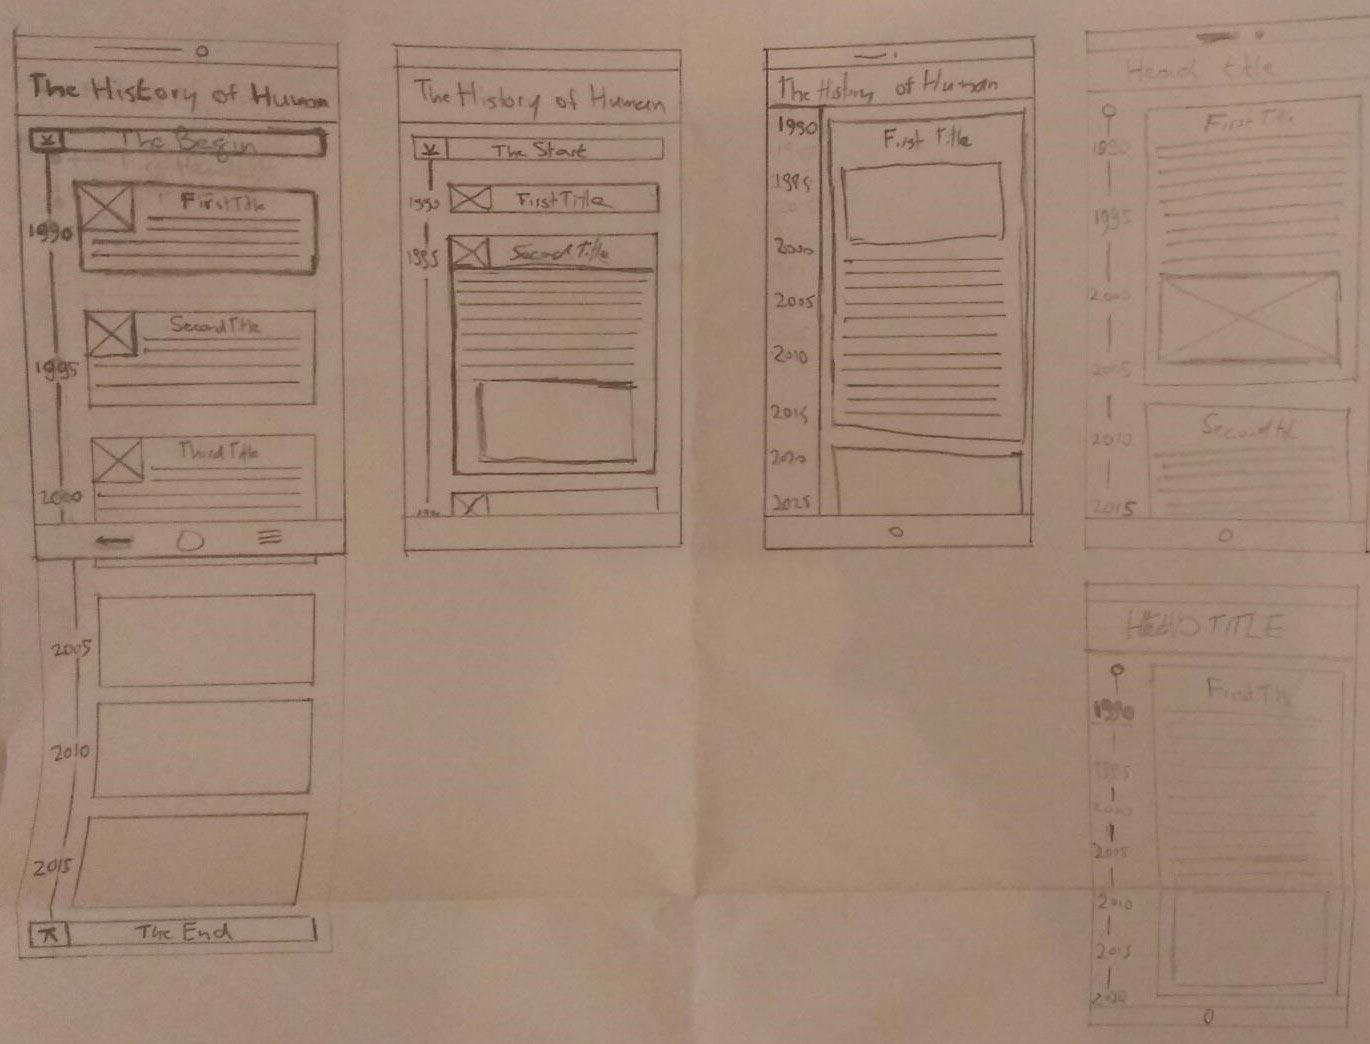 The History of Human
The Begin
First Title
1990
Second Title
1995
Third Title
2000
2005
2010
2015
The End
The History of Human
The Start
1990
First Title
1995
Second Title
The History of Human
1990
First Title
1995
2000
2005
2010
2015
2020
2025
Head title
First Title
1990
1995
2000
2005
2010
Second
2015
HEAD TITLE
First Title
1990
1995
2000
2005
2010
2015
2020